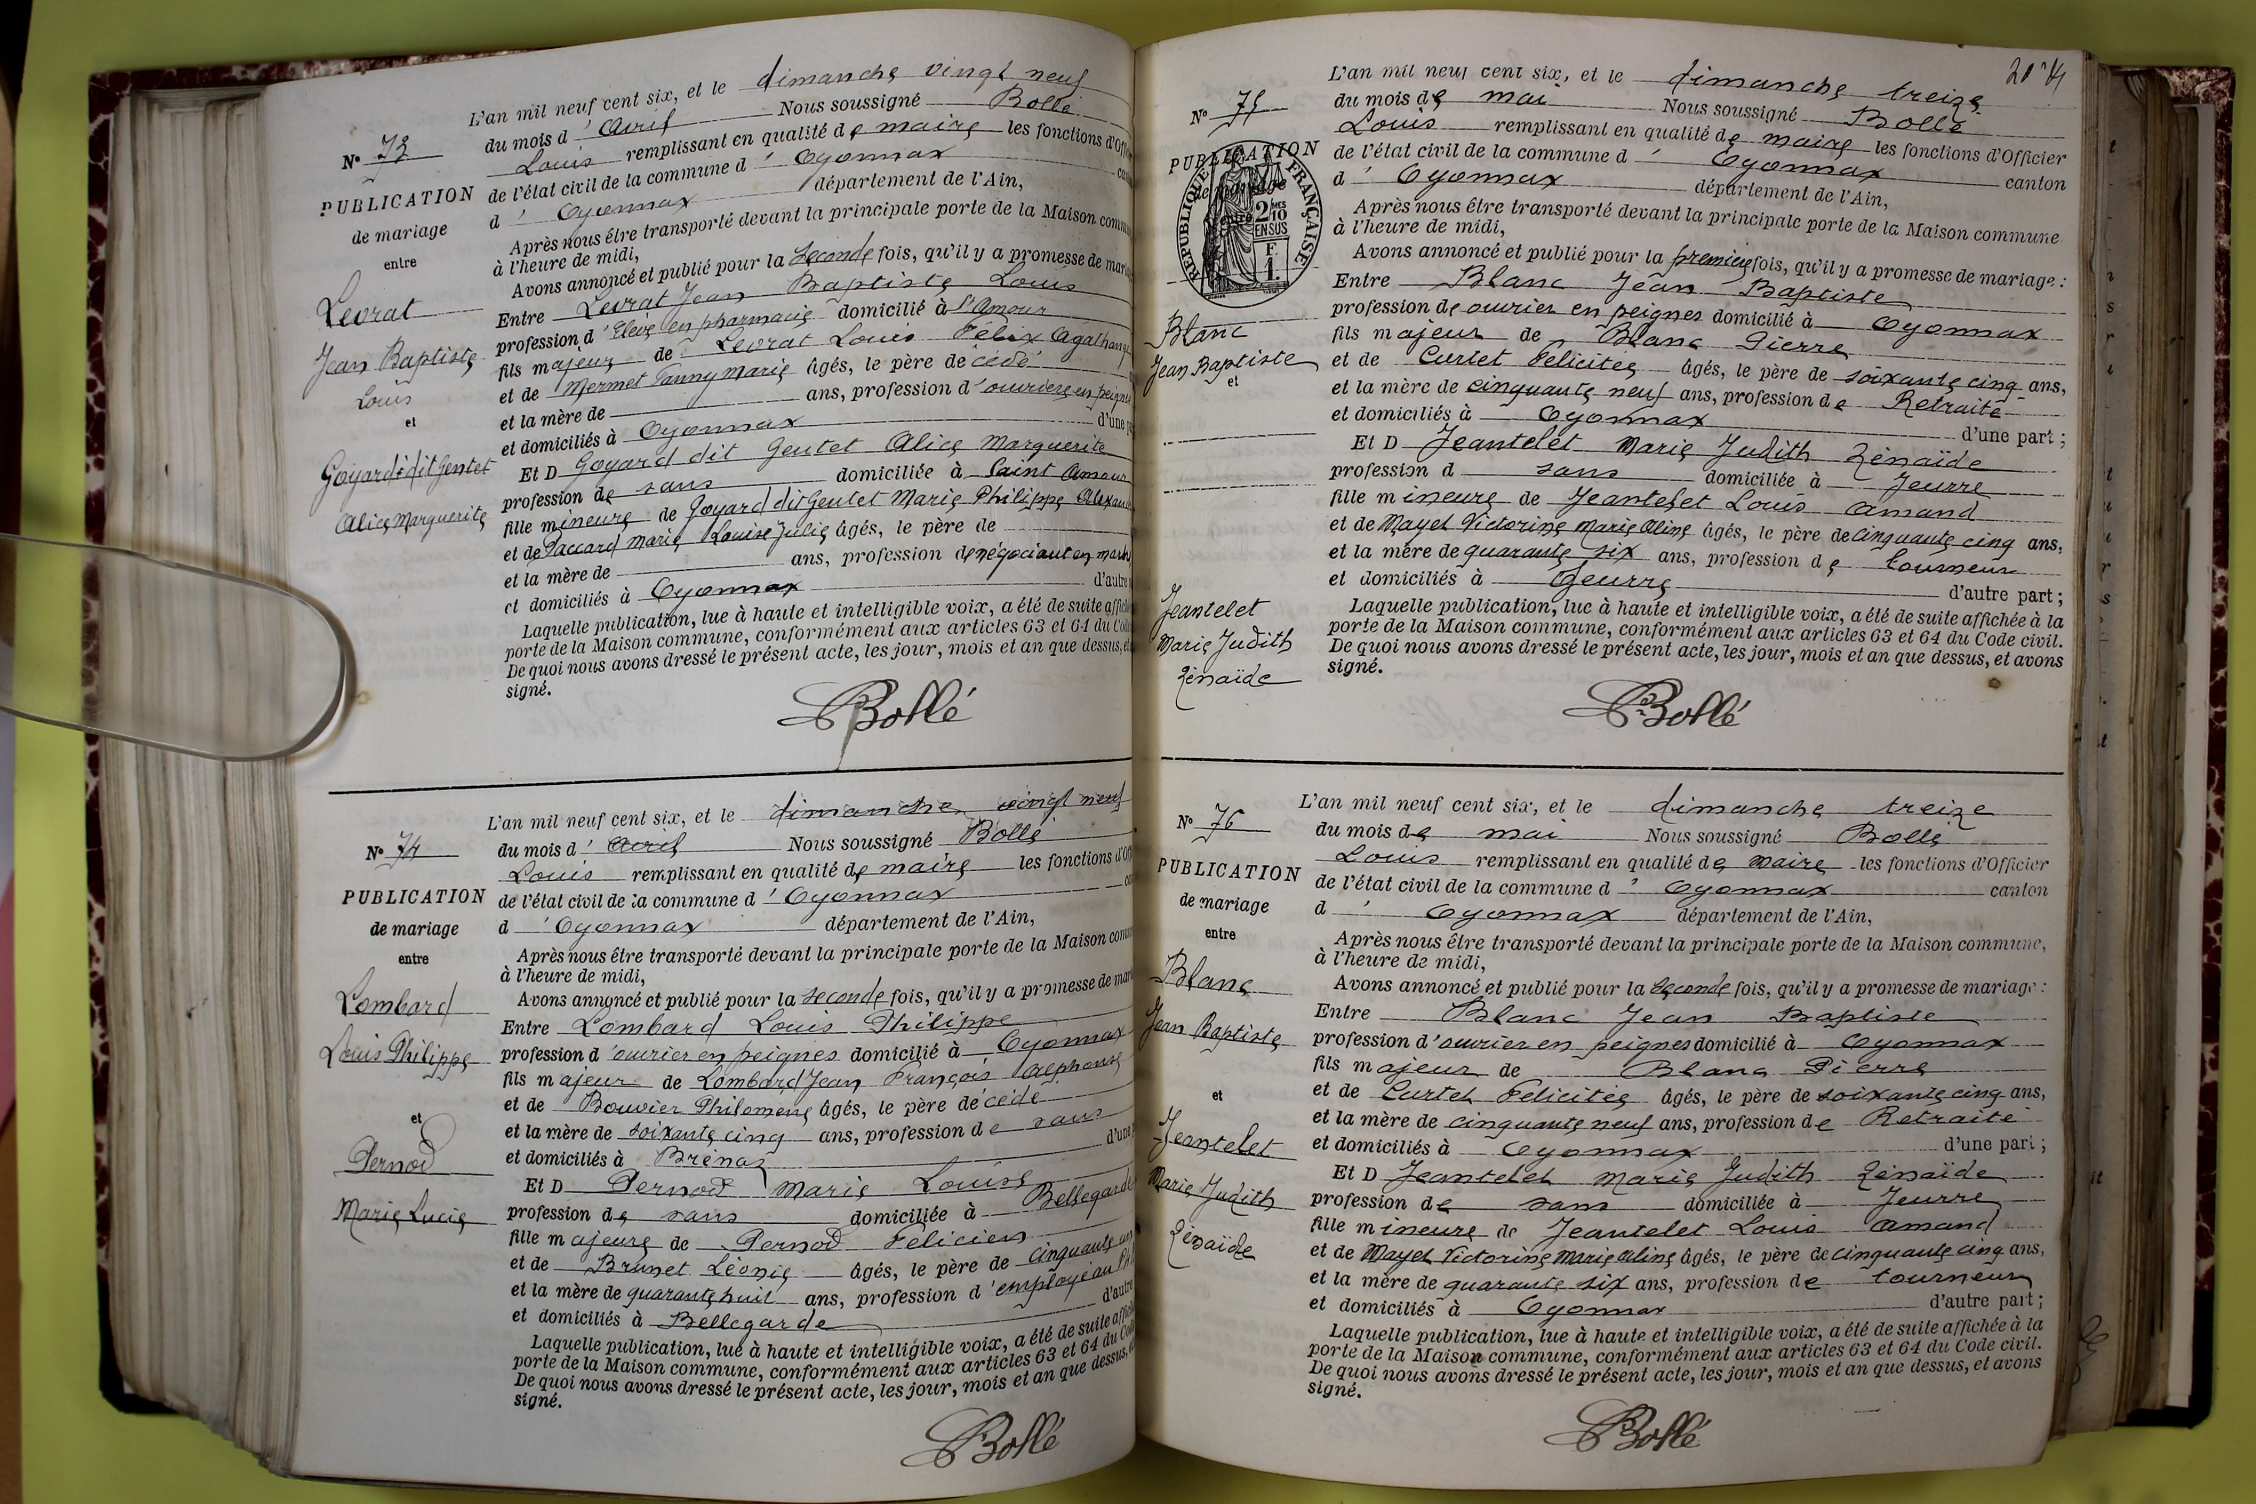 L'an mil neuf cent six, et le dimanche vingt neuf
du mois d'Avril Nous soussigné Bollé
Louis remplissant en qualité de maire les fonctions d'Off
de l'état civil de la commune d'Oyonnax
d'Oyonnax département de l'Ain,
Après nous être transporté devant la principale porte de la Maison commu
à l'heure de midi,
Avons annoncé et publié pour la seconde fois, qu'il y a promesse de maria
Entre Levrat Jean Baptiste Louis
profession d'Elève en pharmacie domicilié à St Amour
fils majeur de Levrat Louis Félix Agathange
et de Mermet Fanny Marie âgés, le père de cédé
et la mère de ans, profession d'ouvrière en peignes
et domiciliés à Oyonnax d'une p
Et D Goyard dit Gentet Alice Marguerite
profession de sans domiciliée à Saint Amour
fille mineure de Goyard dit Gentet Marie Philippe Alexand
et de Paccard Marie Louise Julie âgés, le père de
et la mère de ans, profession de négociant en march
et domiciliés à Oyonnax d'autre
Laquelle publication, lue à haute et intelligible voix, a été de suite affich
porte de la Maison commune, conformément aux articles 63 et 64 du Code
De quoi nous avons dressé le présent acte, les jour, mois et an que dessus, et
signé.
Bollé
N° 73
PUBLICATION
de mariage
entre
Levrat
Jean Baptiste
Louis
et
Goyard dit Gentet
Alice Marguerite
L'an mil neuf cent six, et le dimanche vingt neuf
du mois d'Avril Nous soussigné Bollé
Louis remplissant en qualité de maire les fonctions d'Off
de l'état civil de la commune d'Oyonnax
d'Oyonnax département de l'Ain,
Après nous être transporté devant la principale porte de la Maison commu
à l'heure de midi,
Avons annoncé et publié pour la seconde fois, qu'il y a promesse de mari
Entre Lombard Louis Philippe
profession d'ouvrier en peignes domicilié à Oyonnax
fils majeur de Lombard Jean François Alphonse
et de Bouvier Philomène âgés, le père de cédé
et la mère de soixante cinq ans, profession de sans
et domiciliés à Brénaz d'une
Et D Pernod Marie Louise
profession de sans domiciliée à Bellegarde
fille majeure de Pernod Félicien
et de Brunet Léonie âgés, le père de cinquante
et la mère de quarante huit ans, profession d'employé au
et domiciliés à Bellegarde d'autre
Laquelle publication, lue à haute et intelligible voix, a été de suite affich
porte de la Maison commune, conformément aux articles 63 et 64 du Code
De quoi nous avons dressé le présent acte, les jour, mois et an que dessus,
signé.
Bollé
N° 74
PUBLICATION
de mariage
entre
Lombard
Louis Philippe
et
Pernod
Marie Lucie
L'an mil neuf cent six, et le dimanche treize
du mois de mai Nous soussigné Bollé
Louis remplissant en qualité de maire les fonctions d'Officier
de l'état civil de la commune d'Oyonnax canton
d'Oyonnax département de l'Ain,
Après nous être transporté devant la principale porte de la Maison commune
à l'heure de midi,
Avons annoncé et publié pour la première fois, qu'il y a promesse de mariage :
Entre Blanc Jean Baptiste
profession de ouvrier en peignes domicilié à Oyonnax
fils majeur de Blanc Pierre
et de Curtet Félicitée âgés, le père de soixante cinq ans,
et la mère de cinquante neuf ans, profession de Retraité
et domiciliés à Oyonnax d'une part ;
Et D Jeantelet Marie Judith Zénaïde
profession d sans domiciliée à Jeurre
fille mineure de Jeantelet Louis Amand
et de Mayet Victorine Marie Aline âgés, le père de cinquante cinq ans,
et la mère de quarante six ans, profession de tourneur
et domiciliés à Jeurre d'autre part ;
Laquelle publication, lue à haute et intelligible voix, a été de suite affichée à la
porte de la Maison commune, conformément aux articles 63 et 64 du Code civil.
De quoi nous avons dressé le présent acte, les jour, mois et an que dessus, et avons
signé.
Bollé
N° 75
PUBLICATION
de mariage
entre
RÉPUBLIQUE FRANÇAISE
2 MES
10
EN SUS
F.
1.
Blanc
Jean Baptiste
et
Jeantelet
Marie Judith
Zénaïde
L'an mil neuf cent six, et le dimanche treize
du mois de mai Nous soussigné Bollé
Louis remplissant en qualité de maire les fonctions d'Officier
de l'état civil de la commune d'Oyonnax canton
d'Oyonnax département de l'Ain,
Après nous être transporté devant la principale porte de la Maison commune,
à l'heure de midi,
Avons annoncé et publié pour la seconde fois, qu'il y a promesse de mariage :
Entre Blanc Jean Baptiste
profession d'ouvrier en peignes domicilié à Oyonnax
fils majeur de Blanc Pierre
et de Curtet Félicitée âgés, le père de soixante cinq ans,
et la mère de cinquante neuf ans, profession de Retraité
et domiciliés à Oyonnax d'une part ;
Et D Jeantelet Marie Judith Zénaïde
profession de sans domiciliée à Jeurre
fille mineure de Jeantelet Louis Amand
et de Mayet Victorine Marie Aline âgés, le père de cinquante cinq ans,
et la mère de quarante six ans, profession de tourneur
et domiciliés à Oyonnax d'autre part ;
Laquelle publication, lue à haute et intelligible voix, a été de suite affichée à la
porte de la Maison commune, conformément aux articles 63 et 64 du Code civil.
De quoi nous avons dressé le présent acte, les jour, mois et an que dessus, et avons
signé.
Bollé
N° 76
PUBLICATION
de mariage
entre
Blanc
Jean Baptiste
et
Jeantelet
Marie Judith
Zénaïde